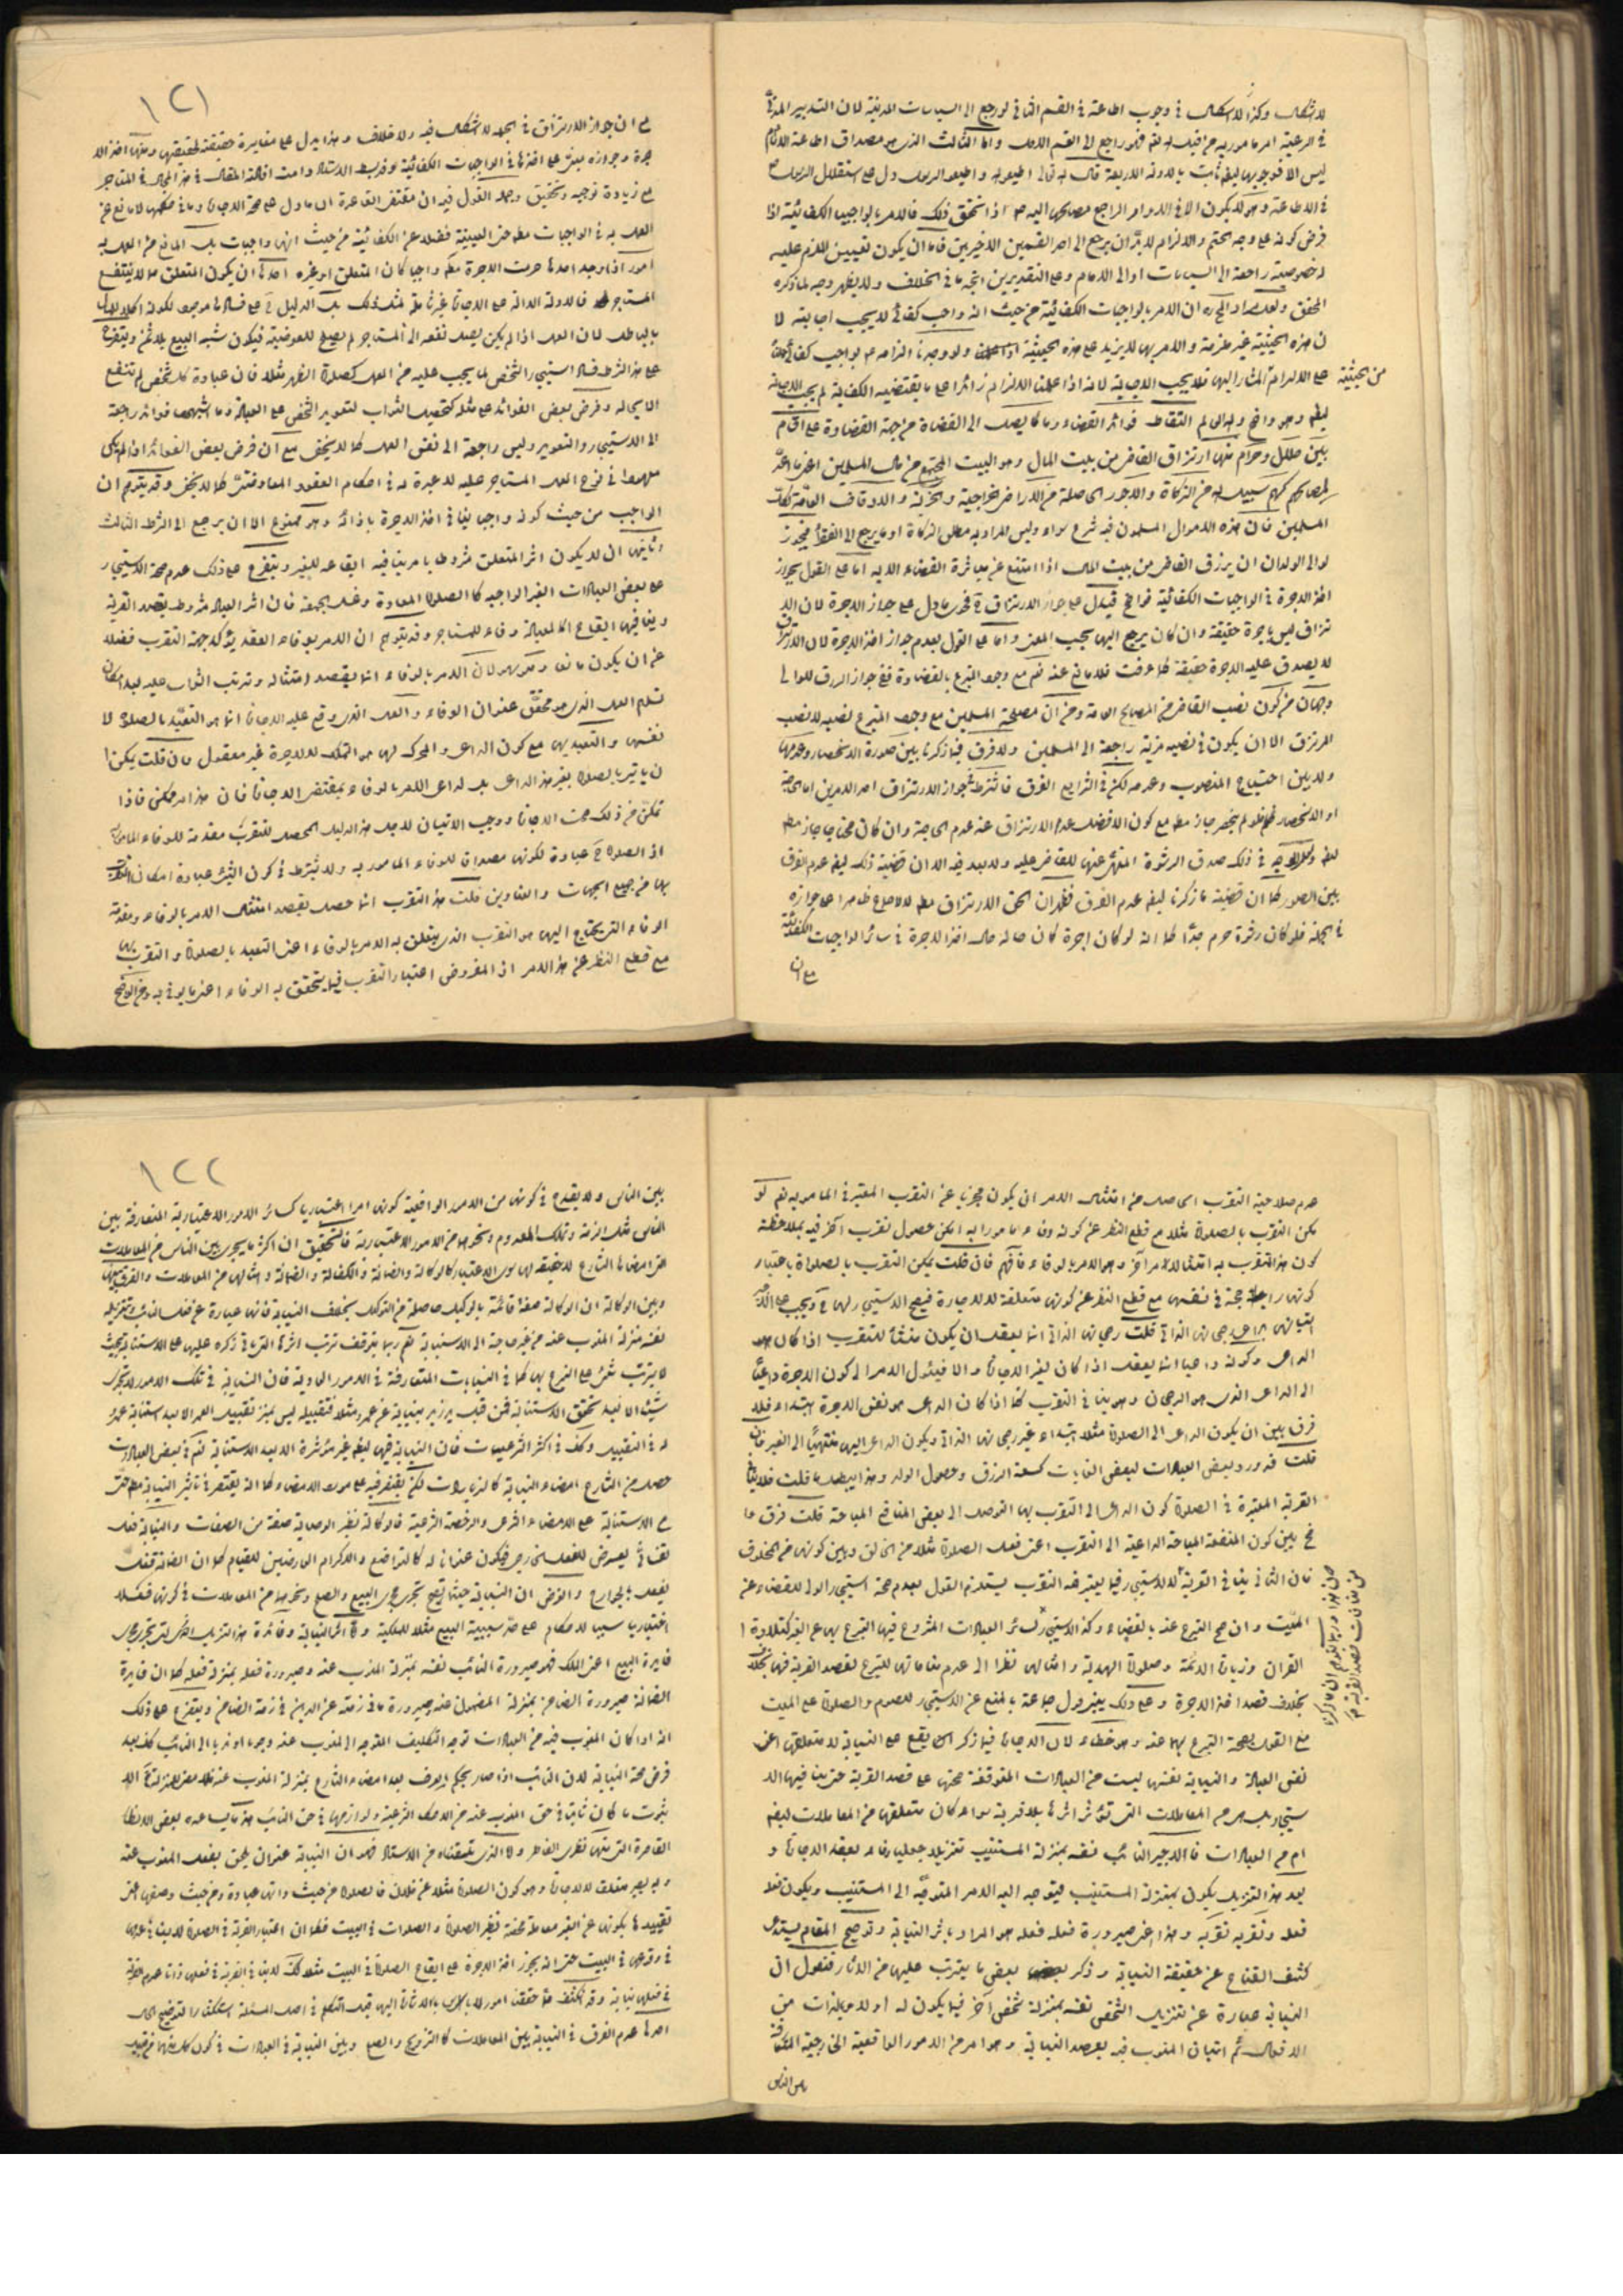 لا اشكال وكذا لا اشكال في وجوب اطاعته في القسم الثاني لو رجع الى السياسات المدنية لان التدبير
في الرعية امر مأمور به من قبله فهو راجع الى القسم الاول واما الثالث الذي هو مصداق اطاعة الامام
ليس الا فوجوبها ايضا ثابت بالادلة الاربعة قال الله تعالى اطيعوا الله واطيعوا الرسول دل على استقلال الرسول
في الاطاعة وهو لا يكون الا في الاوامر الراجع مصالحها اليه اذا تحقق ذلك فالامر بالواجب الكفائية اذا
فرض كونه على وجه الحتم والالزام لا بد ان يرجع الى احد القسمين الاخيرين فاما ان يكون تعيين اللازم عليه
لخصوصية راجعة الى السياسات او الى الامام وعلى التقديرين اتجه ما في الخلاف ولا يظهر وجه لما ذكره
المحقق ان الامر بالواجبات الكفائية من حيث انه واجب كفائي لا يجب اجابته لا
ن هذه الحيثية غير ملزمة والامر بها لا يزيد على هذه الحيثية ولو وجدنا الزامه بواجب كفائي
من الحيثية
على الالزام المشار اليها فلا يجب الاجابة لانه اذا علمنا الالزام زائدا على ما يقتضيه الكفائية لم يجب الاجابة
ايضا وهو واضح التقاط فوائد القضاء وما كان يصل الى القضاة من جهة القضاوة على اقسام
بين حلال وحرام منها ارتزاق القاضي من بيت المال وهو البيت المجتمع من مال المسلمين اعني ما اعد
لمصالحهم كسهم سبيل الله من الزكاة والاجور الحاصلة من الاراضي الخراجية والجزية والاوقاف العامة لكافة
المسلمين فان هذه الاموال المسلمون فيه شرع سواء وليس المراد به مطلق الزكاة او ما يرجع الى الفقراء فيجوز
لوالي الولدان ان يرزق القاضي من بيت المال اذا امتنع عن مباشرة القضاء الا به اما على القول بجواز
اخذ الاجرة في الواجبات الكفائية فواضح فيدل على جواز الارتزاق فحوى ما دل على جواز الاجرة لان الار
تزاق ليس باجرة حقيقة وان كان يرجع اليها بحسب المعنى واما على القول بعدم جواز اخذ الاجرة لان الارتزاق
لا يصدق عليه الاجرة حقيقة كما عرفت فلا مانع عنه نعم مع وجود المتبرع بالقضاوة ففي جواز الرزق للوالي
وجهان من كون نصب القاضي من المصالح العامة ومن ان مصلحة المسلمين مع وجود المتبرع نصبه لا نصب
المرتزق الا ان يكون في نصبه مزية راجعة الى المسلمين ولا فرق فيما ذكرنا بين صورة الانحصار وعدمها
ولا بين احتياج المنصوب وعدمه لكن في الشرايع الفرق فاشترط بجواز الارتزاق احد الامرين اما الحاجة
او الانحصار فلو لم ينحصر جاز مطلقا مع كون الافضل عدم الارتزاق عند عدم الحاجة وان كان محتاجا جاز مطلقا
في ذلك صدق الرشوة المنهي عنها للقاضي عليه ولا بعد فيه الا ان قضية ذلك ايضا عدم الفرق
بين الصور كما ان قضية ما ذكرنا ايضا عدم الفرق فظهر ان الحق الارتزاق مطلقا للاجماع ظاهرا على جوازه
في الجملة فلو كان رشوة حرم جدا كما انه لو كان اجرة كان حاله حال اخذ الاجرة في سائر الواجبات الكفائية
مع ان
١٢١
مع ان جواز الارتزاق في الجملة لا اشكال فيه ولا خلاف وهذا يدل على مغايرة حقيقته لحقيقتها ومنها اخذ الا
جرة وجوازه مبني على اخذها في الواجبات الكفائية وقد بسط الاستاد دامت افادته المقال في هذا المجال في المتاجر
مع زيادة توجيه وتحقيق ومجمل القول فيه ان مقتضى القاعدة الى ما دل على صحة الاجارة وما في حكمها لا مانع من
العمل به في الواجبات مطلقا حتى العينية فضلا عن الكفائية من حيث انها واجبات بل المانع من العمل به
امور اذا وجد احدها حرمت الاجرة مطلقا واجبا كان المتعلق او غيره احدها ان يكون المتعلق مما لا ينتفع
المستاجر فالادلة الدالة على الاجارة غير شاملة لمثل ذلك بل الدليل على فساده موجود لكونه اكلا للمال
بالباطل لان العمل اذا لم يكن يصل نفعه الى المستاجر لم يصلح للعوضية فيكون شبه البيع بلا ثمن ويتفرع
على هذا الشرط فساد استيجار الشخص لما يجب عليه من العمل كصلوة الظهر مثلا فان عبادة كل شخص لم تنتفع
الا بحاله وفرض بعض الفوائد على مثله كتحصيل الثواب لتعويد الشخص على العبادة وما اشبهها فوائد راجعة
الى الاستيجار والتعويد وليس راجعة الى نفس العمل كما لا يخفى مع ان فرض بعض الفوائد اذا لم يكن
ملحوظا في نوع العمل المستاجر عليه لا عبرة به في احكام العقود المعاوضية كما لا يخفى وقد يتوهم ان
الواجب من حيث كونه واجبا ينافي اخذ الاجرة بازائه وهو ممنوع الا ان يرجع الى الشرط الثالث
وثانيها ان لا يكون اثر المتعلق مشروطا بامر ينافيه ايقاعه للغير ويتفرع على ذلك عدم صحة الاستيجار
على بعض العبادات الغير الواجبة كالصلوة المعادة وغسل الجمعة فان اثر العبادة مشروط بقصد القربة
وينافيها ايقاع العبادة وفاء للمستاجر وقد يتوهم ان الامر بوفاء العقد يؤكد جهة التقرب فضلا
عن ان يكون مانعا وهو سهو لان الامر بالوفاء انما يقصد امتثاله وترتب الثواب عليه بعد امكان
تسليم العمل الذي هو محقق عنوان الوفاء والعمل الذي وقع عليه الاجارة انما هو التعبد بالصلوة لا
نفسها والتعبد بها مع كون الداعي والمحرك لها هو التملك للاجرة غير معقول فان قلت يمكن ا
ن ياتي بالصلوة بغير هذا الداعي بل لداعي الامر بالوفاء بمقتضى الاجارة فان هذا امر ممكن فاذا
تمكن من ذلك صحت الاجارة ووجب الاتيان لاجل هذا الدليل المحصل للتقرب مقدمة للوفاء المامور به
اذ الصلوة ح عبادة لكونها مصداق للوفاء المامور به ولا يشترط في كون الشيء عبادة امكان التقرب
بها من جميع الجهات والعناوين قلت هذا التقرب انما حصل بقصد امتثال الامر بالوفاء ومقدمة
الوفاء التي يحتاج اليها هو التقرب الذي يتعلق به الامر بالوفاء اعني التعبد بالصلوة والتقرب بها
مع قطع النظر عن هذا الامر اذ المفروض اعتبار التقرب فيما يتحقق به الوفاء اعني ما يوفى به ومن الواضح
عدم صلاحية التقرب الحاصل من امتثال الامر ان يكون مجزيا عن التقرب المعتبر في المامور به نعم لو
يمكن التقرب بالصلوة مثلا مع قطع النظر عن كونه وفاء مامورا به امكن حصول تقرب آخر فيه بملاحظة
كون هذا التقرب به امتثالا لامر آخر وهو الامر بالوفاء فافهم فان قلت يمكن التقرب بالصلوة باعتبار
كونها راجحة في نفسها مع قطع النظر عن كونها متعلقة للاجارة فيصح الاستيجار لها ح ويجب على الاجير
اتيانها بداعي رجحانها الذاتي قلت رجحانها الذاتي انما يعقل ان يكون منشأ للتقرب اذا كان هو
الداعي وكونه داعيا انما يعقل اذا كان لغير الاجارة والا فيئول الامر الى كون الاجرة داعيا
الى الداعي الذي هو الرجحان وهو ينافي التقرب كما اذا كان الداعي هو نفس الاجرة ابتداء فلا
فرق بين ان يكون الداعي الى الصلوة مثلا ابتداء غير رجحانها الذاتي ويكون الداعي اليها منتهيا الى الغير فان
قلت قد ورد لبعض العبادات لبعض الغايات كسعة الرزق وحصول الولد وهذا يبطل ما قلت فلا ينافي
القربة المعتبرة في الصلوة كون الداعي الى التقرب بها التوصل الى بعض المنافع المباحة قلت فرق وا
ضح بين كون المنفعة المباحة الداعية الى التقرب اعني فعل الصلوة مثلا من الخالق وبين كونها من المخلوق
فان الثاني ينافي القربة للاستيجار فيما يعتبر فيه التقرب يستلزم القول بعدم صحة استيجار الولي للقضاء عن
الميت وان صح التبرع عنه بالقضاء وكذا الاستيجار لسائر العبادات المشروع فيها التبرع بها عن الغير كتلاوة ا
القران وزيارة الائمة وصلوة الهدية وامثالها نظرا الى عدم منافاتها للتبرع لقصد القربة فيها بخلاف
بخلاف قصد اخذ الاجرة وعلى ذلك ينزل قول جماعة بالمنع عن الاستيجار للصوم والصلوة على الميت
مع القول بصحة التبرع بها عنه وهو خطاء لان الاجارة فيما ذكر انما يقع على النيابة لا متعلقها اعني
نفس العبادة والنيابة نفسها ليست من العبادات المتوقفة صحتها على قصد القربة حتى ينافيها الا
ستيجار بل هي من المعاملات التي تؤثر اثرها بلا قربة سواء كان متعلقها من المعاملات ايضا
ام من العبادات فالاجير النائب نفسه بمنزلة المستنيب تنزيلا جعليا وفاء بعقد الاجارة و
بعد هذا التنزيل يكون بمنزلة المستنيب فيتوجه اليه الامر المتوجه الى المستنيب ويكون فعله
فعله وتقربه تقربه وهذا اعني صيرورة فعله فعله هو المراد باثر النيابة وتوضيح المقام يستدعي
كشف القناع عن حقيقة النيابة وذكر بعض ما يترتب عليها من الاثار فنقول ان
النيابة عبارة عن تنزيل الشخص نفسه بمنزلة شخص آخر فيما يكون له اولا وبالذات من
الافعال ثم اتيان المنوب فيه بعد النيابة وهو امر من الامور الواقعية الخارجية المتعارفة
بين الناس
١٢٢
بين الناس ولا يقدح في كونها من الامور الواقعية كونها امرا اعتباريا كسائر الامور الاعتبارية المتعارفة بين
الناس مثل الزمة وتملك المعدوم ونحوها من الامور الاعتبارية فالتحقيق ان اكثر ما يجري بين الناس من المعاملات
التي امضاها الشارع لا حقيقة لها سوى الاعتبار كالوكالة والضمانة والكفالة والضمانة وامثالها من المعاملات والفرق بينها
وبين الوكالة ان الوكالة صفة قائمة بالوكيل حاصلة من التوكيل بخلاف النيابة فانها عبارة عن فعل النائب وتنزيله
نفسه منزلة المنوب عنه من غير حاجة الى الاستنابة نعم ربما يتوقف ترتب اثرها التي ياتي ذكره عليها على الاستنابة بحيث
لا يترتب شيء على التبرع بها كما في النيابات المتعارفة في الامور العادية فان النيابة في تلك الامور لا تجدي
شيئا الا بعد تحقق الاستنابة فمن قبل يد زيد بنيابة عن عمرو مثلا فتقبيله ليس بمنزلة تقبيل العمرو الا بعد استنابة عمرو
له في التقبيل وكذا في اكثر الشرعيات فان النيابة فيها ايضا غير مؤثرة الا بعد الاستنابة نعم في بعض العبادات
حصل من الشارع امضاء النيابة كالزيارات لكن يقتصر فيه على مورد الامضاء كما انه يقتصر في تاثير النيابة مطلقا حتى
مع الاستنابة على الامضاء الشرعي والرخصة الشرعية فالوكالة نظير الوصاية صفة من الصفات والنيابة فعل
نفساني يعرض للفعل الخارجي فيكون عنوانا له كالتواضع والاكرام العارضين للقيام كما ان الضمانة فعل
يفعل بالجوارح والغرض ان النيابة حيثما تصح تجري مجرى البيع والصلح ونحوها من المعاملات في كونها فعلا
اختياريا سببا لاحكام على حد سببية البيع مثلا للملكية والاثر النيابة وفائدة هذا التنزيل الذي تجري مجرى
فايدة البيع اعني الملك فهو صيرورة النائب نفسه بمنزلة المنوب عنه وصيرورة فعله بمنزلة فعله كما ان فايدة
الضمانة صيرورة الضامن بمنزلة المضمون عنه وصيرورة ما في ذمته عن الدين في ذمة الضامن ويتفرع على ذلك
انه اذا كان المنوب فيه من العبادات توجه التكليف المتوجه الى المنوب عنه وجوبا او ندبا الى النائب كذا بعد
فرض صحة النيابة لان النائب اذا صار بحكم العرف بعد امضاء الشارع بمنزلة المنوب عنه فلا معنى للمنزلة الا
بثبوت ما كان ثابتا في حق المنوب عنه من الاحكام الشرعية ولوازمها في حق النائب هذا ما يساعده بعض الانظار
القاصرة التي منها نظري القاصر والذي تلقيناه من الاستاد فهو ان النيابة عنوان يلحق بفعل المنوب عنه
وبه يصير متعلقا للاجارة وهو كون الصلوة مثلا عن فلان فالصلوة من حيث ذاتها عبادة ومن حيث وصفها اعني
تقييدها بكونها عن الغير معاملة محضة نظير الصلوة والصلوات في البيت فكما ان اعتبار القربة في الصلوة لا ينافي عدمها
في وقوعها في البيت حتى انه يجوز اخذ الاجرة على ايقاع الصلوة في البيت مثلا كك لا ينافي القربة في فعلها ذاتا عدم القربة
في فعلها نيابة وقد انكشف مما حققنا امور لا باس بالاشارة اليها قبل التكلم في اصل المسئلة استكشافا لتوضيح الحال
احدها عدم الفرق في النيابة بين المعاملات كالتزويج والصلح وبين النيابة في العبادات في كون كل منهما من قبيل